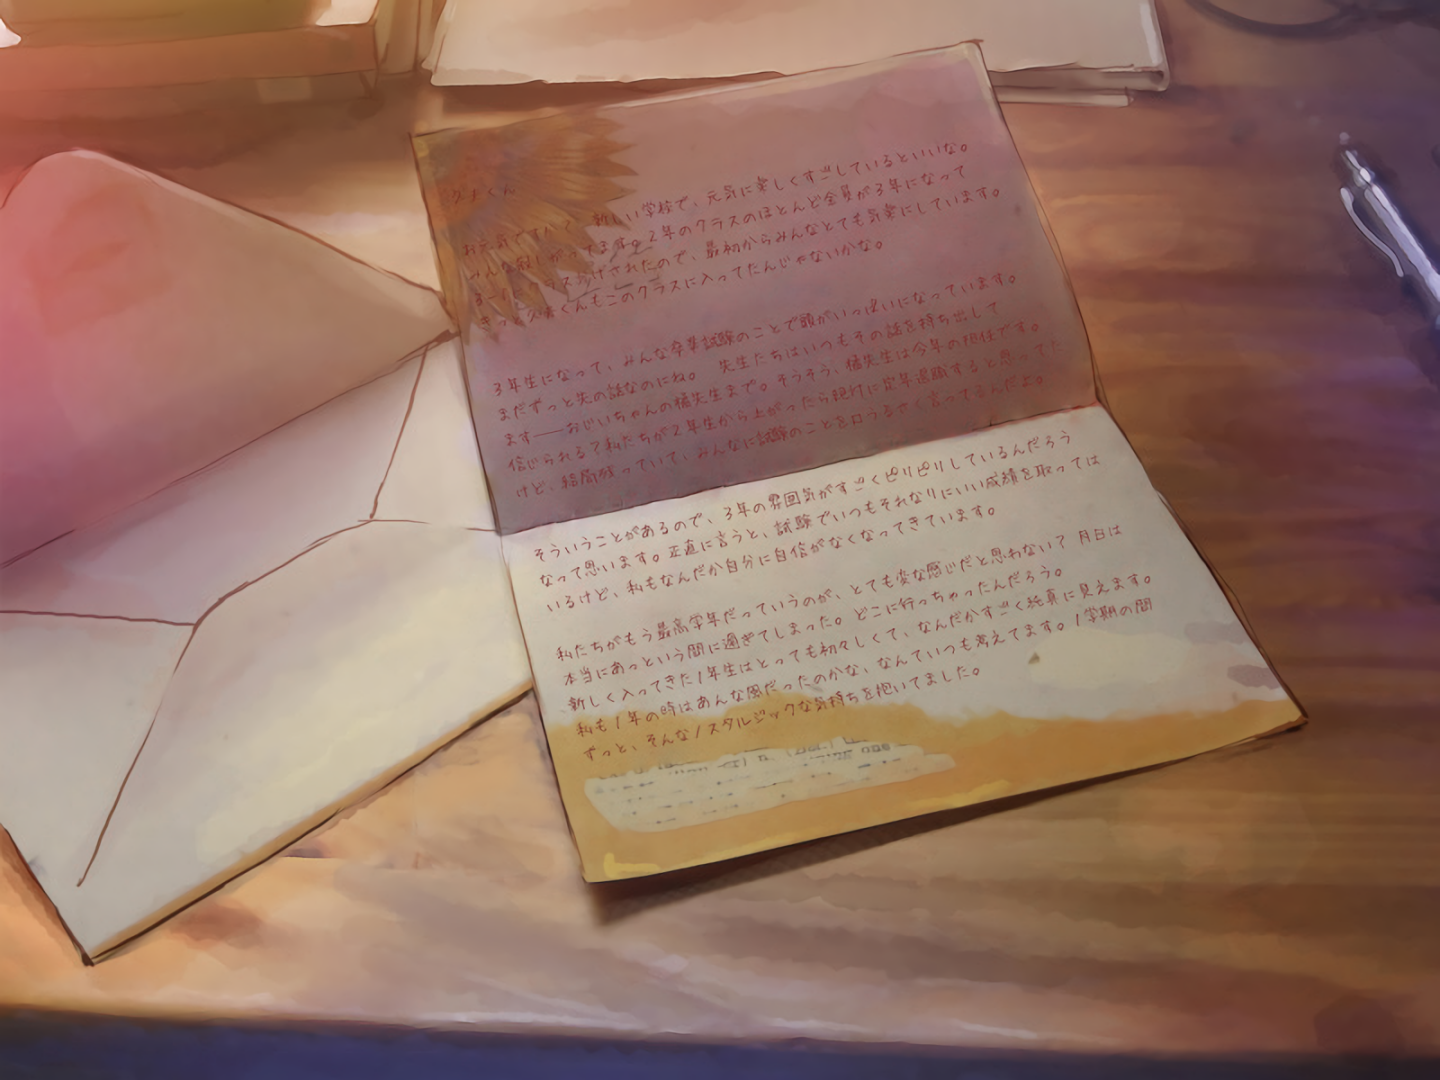 久夫くん
お元気ですか？　新しい学校で、元気に楽しくすごしているといいな。
みんな寂しがってます。2年のクラスのほとんど全員が3年になって
クラス げされたので、最初からみんなとても気楽にしています。
きっと久夫くんもこのクラスに入ってたんじゃないかな。
3年生になって、みんな卒業試験のことで頭がいっぱいになっています。
まだずっと先の話なのにね。　先生たちはいつもその話を持ち出して
ます──おじいちゃんの橘先生まで。そうそう、橘先生は今年の担任です。
信じられる？私たちが2年生から上がったら絶対に定年退職すると思ってた
けど、結局残っていて、みんなに試験のことを口うるさく言ってきんだよ。
そういうことがあるので、3年の雰囲気がすごくピリピリしているんだろう
なって思います。正直に言うと、試験でいつもそれなりにいい成績を取っては
いるけど、私もなんだか自分に自信がなくなってきています。
私たちがもう最高学年だっていうのが、とても変な感じだと思わない？　月日は
本当にあっという間に過ぎてしまった。どこに行っちゃったんだろう。
新しく入ってきた1年生はとっても初々しくて、なんだかすごく純真に見えます。
私も1年の時はあんな風だったのかな、なんていつも考えてます。1学期の間
ずっと、そんなノスタルジックな気持ちを抱いてました。